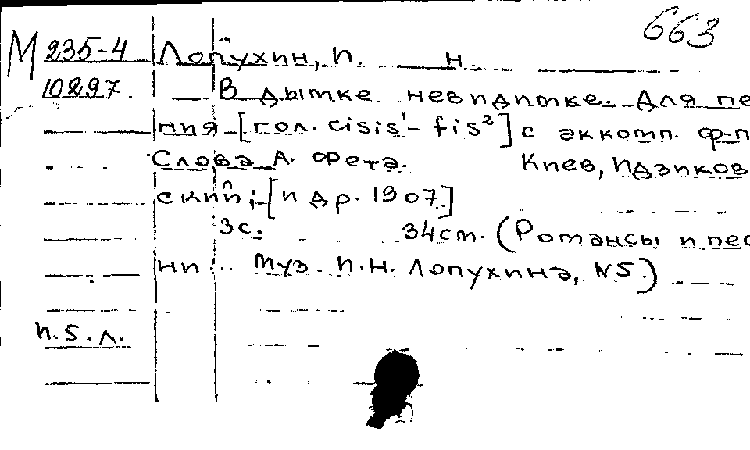 663
М 235-4 Лопухин, П. Н.
10297. В дымке невидимке. Для пе
ния [гол. cisis¹ - fis²] с аккомп. ф-п
Слова А. Фета. Киев, Идзиков
ский, [и др. 1907.]
3с. 34см. (Романсы и пес
ни... муз. П.Н. Лопухина, №5)
п. 5. л.